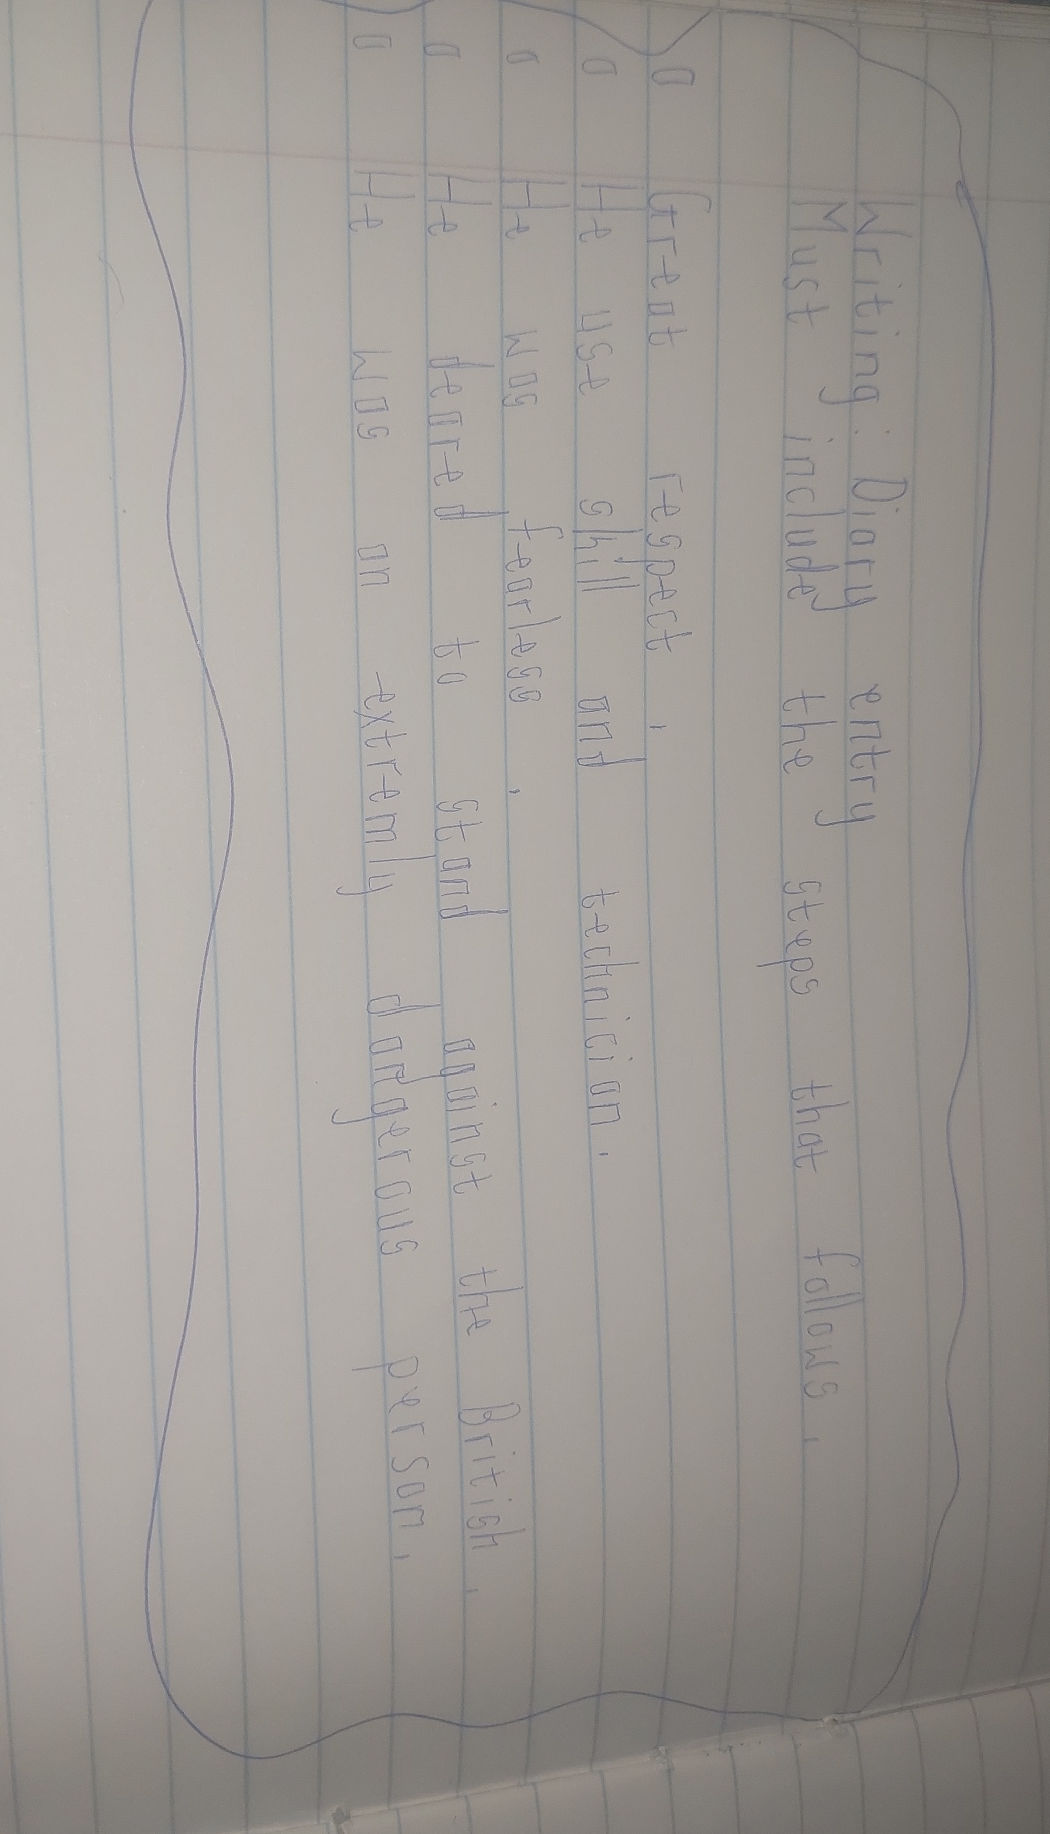 Writing: Diary entry
Must include the steps that follows.
Great respect.
He use skill and technician.
He was fearless.
He deared to stand against the British.
He was an extremly dangerous person.